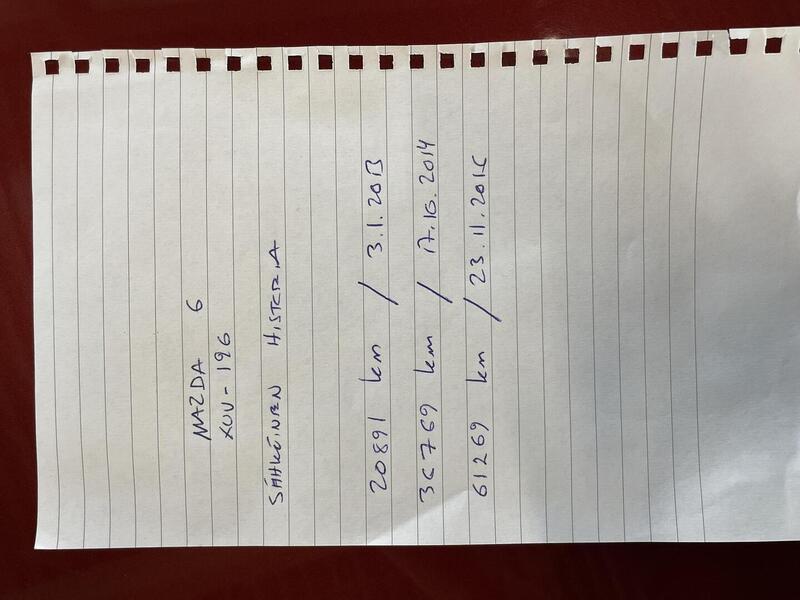 MAZDA 6
XOV-196
SÄHKÖINEN HISTORIA
20891 km / 3.1.2013
36769 km / 17.10.2014
61269 km / 23.11.2015